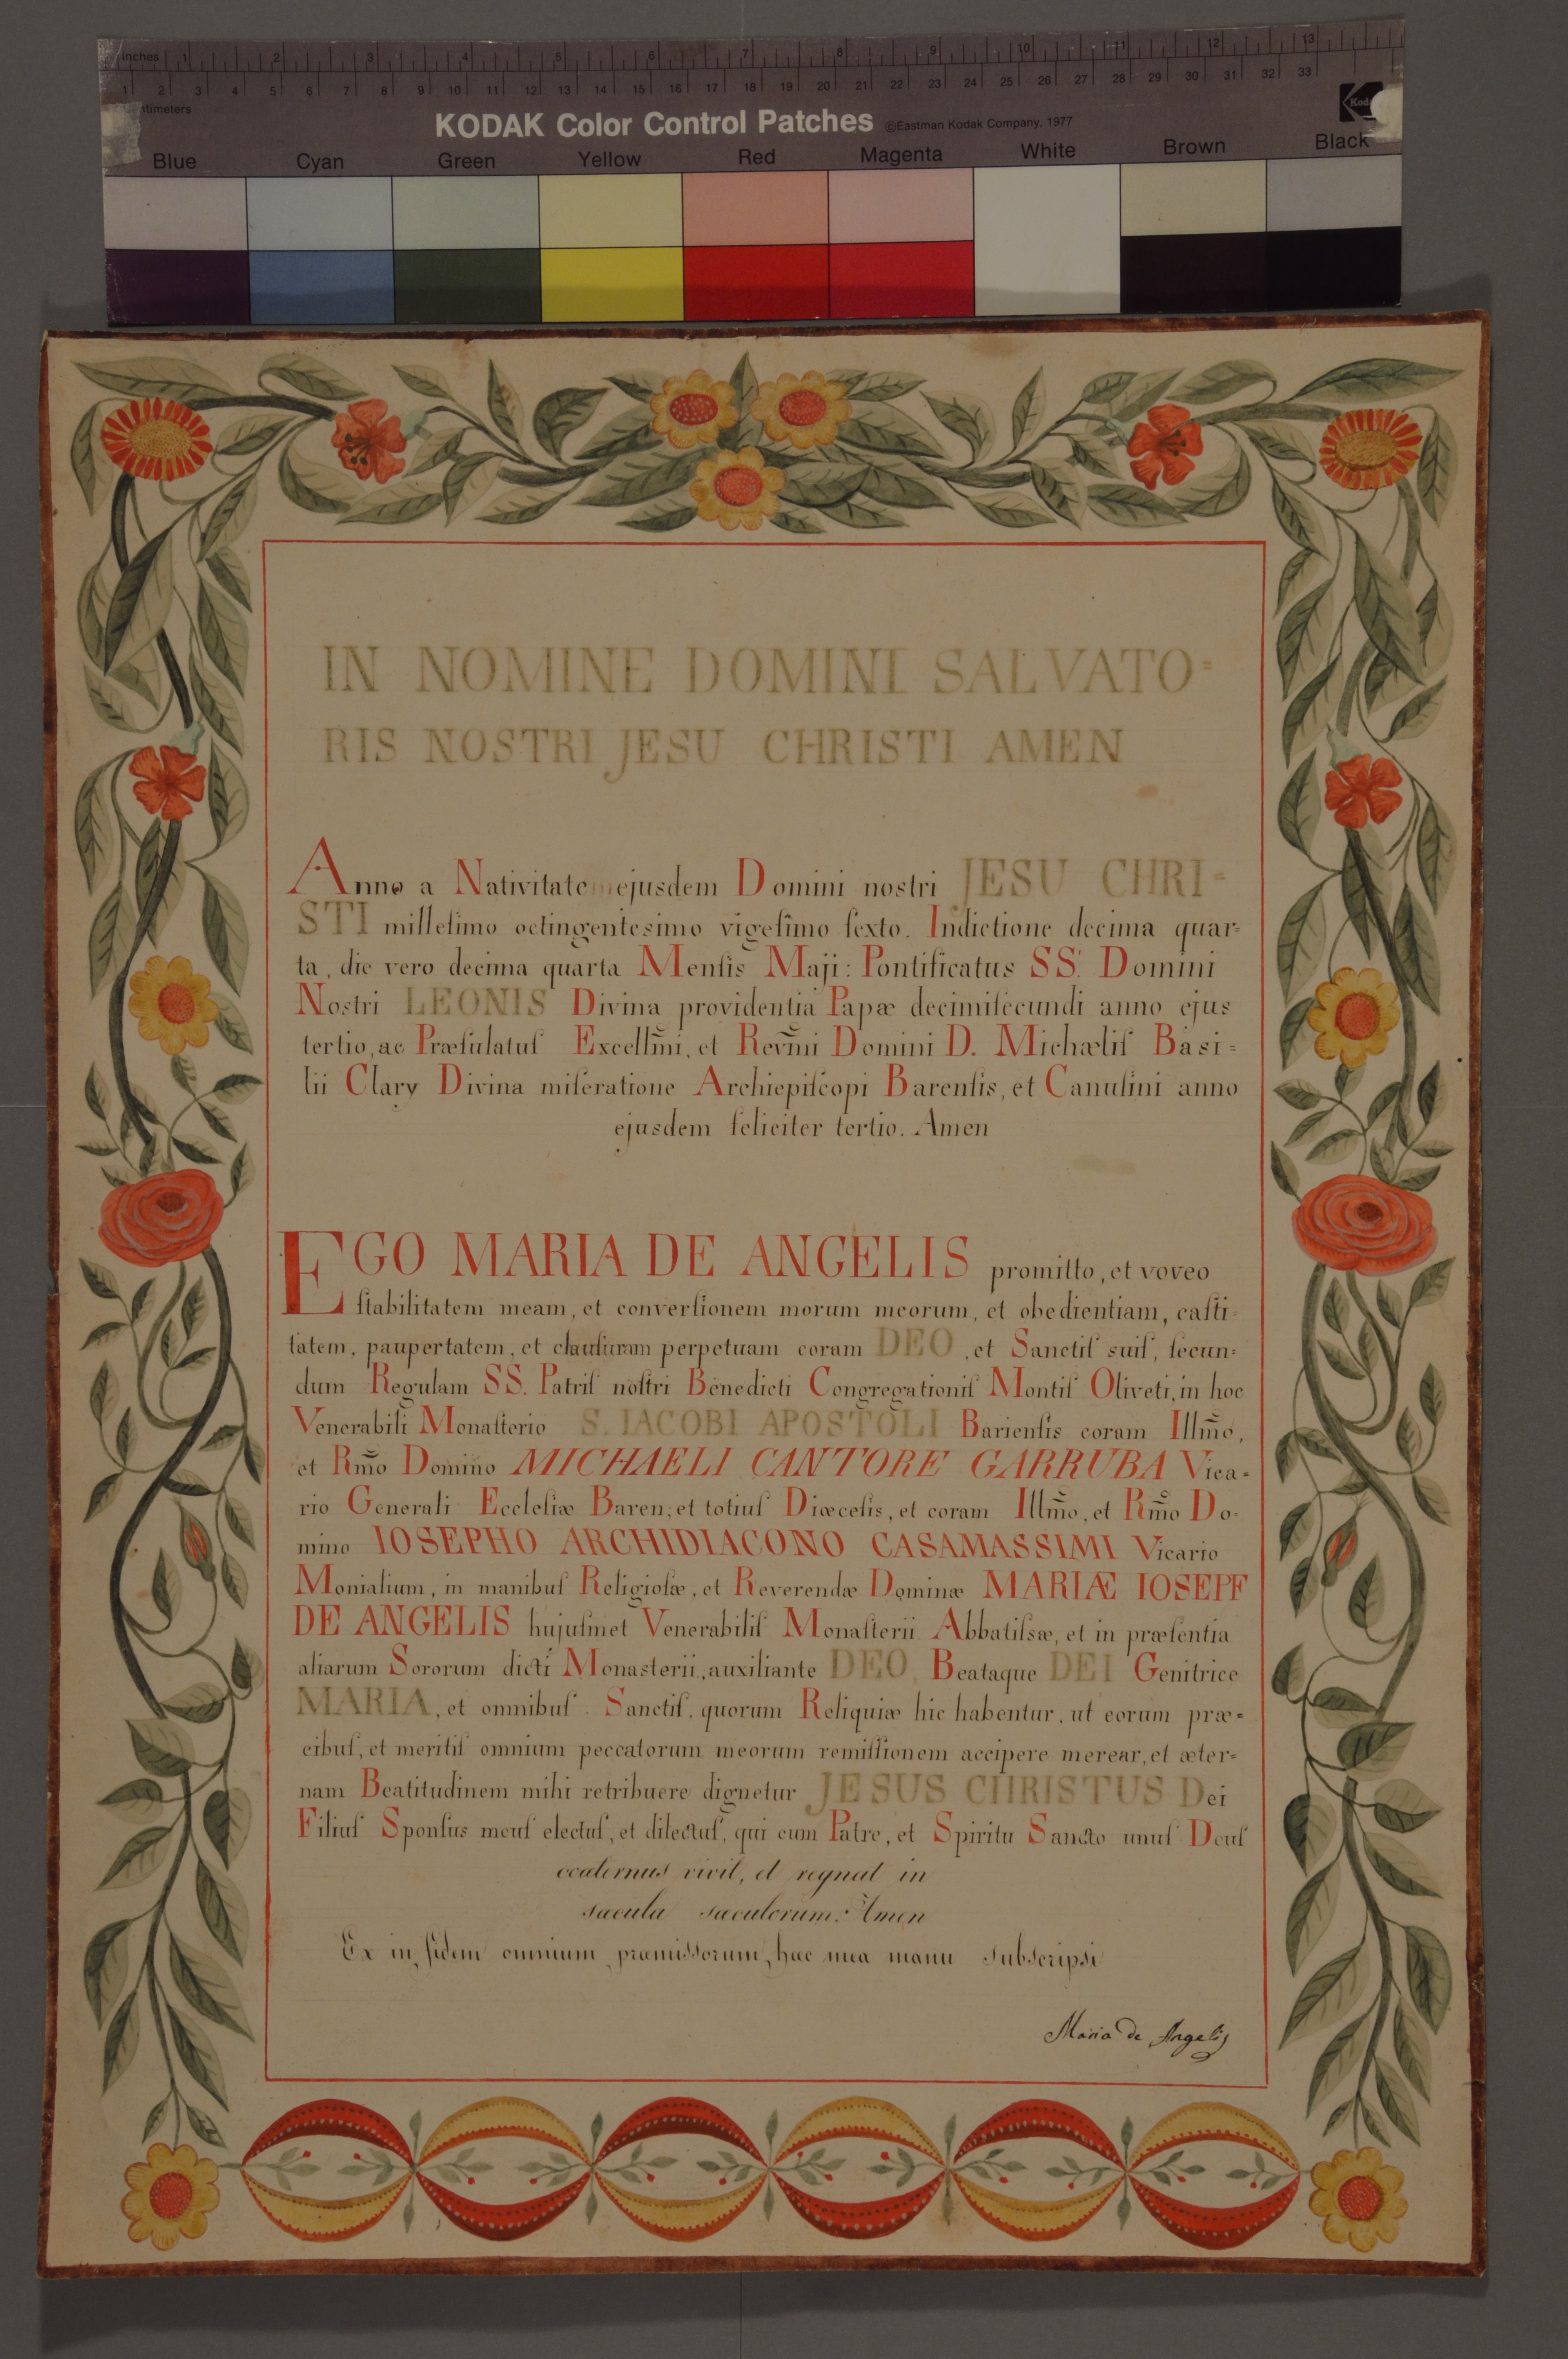 Inches 1 2 3 4 5 6 7 8 9 10 11 12 13
1 2 3 4 5 6 7 8 9 10 11 12 13 14 15 16 17 18 19 20 21 22 23 24 25 26 27 28 29 30 31 32 33
KODAK Color Control Patches ©Eastman Kodak Company, 1977
Blue Cyan Green Yellow Red Magenta White Brown Black
IN NOMINE DOMINI SALVATO=
RIS NOSTRI JESU CHRISTI AMEN
Anno a Nativitate ejusdem Domini nostri JESU CHRI=
STI milleſimo octingentesimo vigeſimo ſexto. Indictione decima quar=
ta, die vero decima quarta Menſis Maji: Pontificatus SS. Domini
Nostri LEONIS Divina providentia Papæ decimiſecundi anno ejus
tertio, ac Præſulatuſ Excellm̃i, et Revm̃i Domini D. Michæliſ Basi=
lii Clary Divina miſeratione Archiepiſcopi Barenſis, et Canuſini anno
ejusdem feliciter tertio. Amen
EGO MARIA DE ANGELIS promitto, et voveo
ſtabilitatem meam, et converſionem morum meorum, et obedientiam, caſti=
tatem, paupertatem, et clauſuram perpetuam coram DEO, et Sanctiſ suiſ, ſecun=
dum Regulam SS. Patriſ noſtri Benedicti Congregationiſ Montiſ Oliveti, in hoc
Venerabili Monaſterio S. IACOBI APOSTOLI Barienſis coram Illm̃o,
et Rm̃o Domino MICHAELI CANTORE GARRUBA Vica=
rio Generali Eccleſiæ Baren; et totiuſ Diœceſis, et coram Illm̃o, et Rm̃o Do=
mino IOSEPHO ARCHIDIACONO CASAMASSIMI Vicario
Monialium, in manibuſ Religioſæ, et Reverendæ Dominæ MARIÆ IOSEPF
DE ANGELIS hujuſmet Venerabiliſ Monaſterii Abbatiſsæ, et in præſentia
aliarum Sororum dicti Monasterii, auxiliante DEO, Beataque DEI Genitrice
MARIA, et omnibuſ Sanctiſ, quorum Reliquiæ hic habentur, ut eorum præ=
cibuſ, et meritiſ omnium peccatorum meorum remiſſionem accipere merear, et æter=
nam Beatitudinem mihi retribuere dignetur JESUS CHRISTUS Dei
Filiuſ Sponſus meuſ electuſ, et dilectuſ, qui cum Patre, et Spiritu Sancto unuſ Deuſ
coæternus vivit, et regnat in
sæcula sæculorum. Amen
Ex in fidem omnium præmissorum, hac mea manu subscripsi
Maria de Angelis